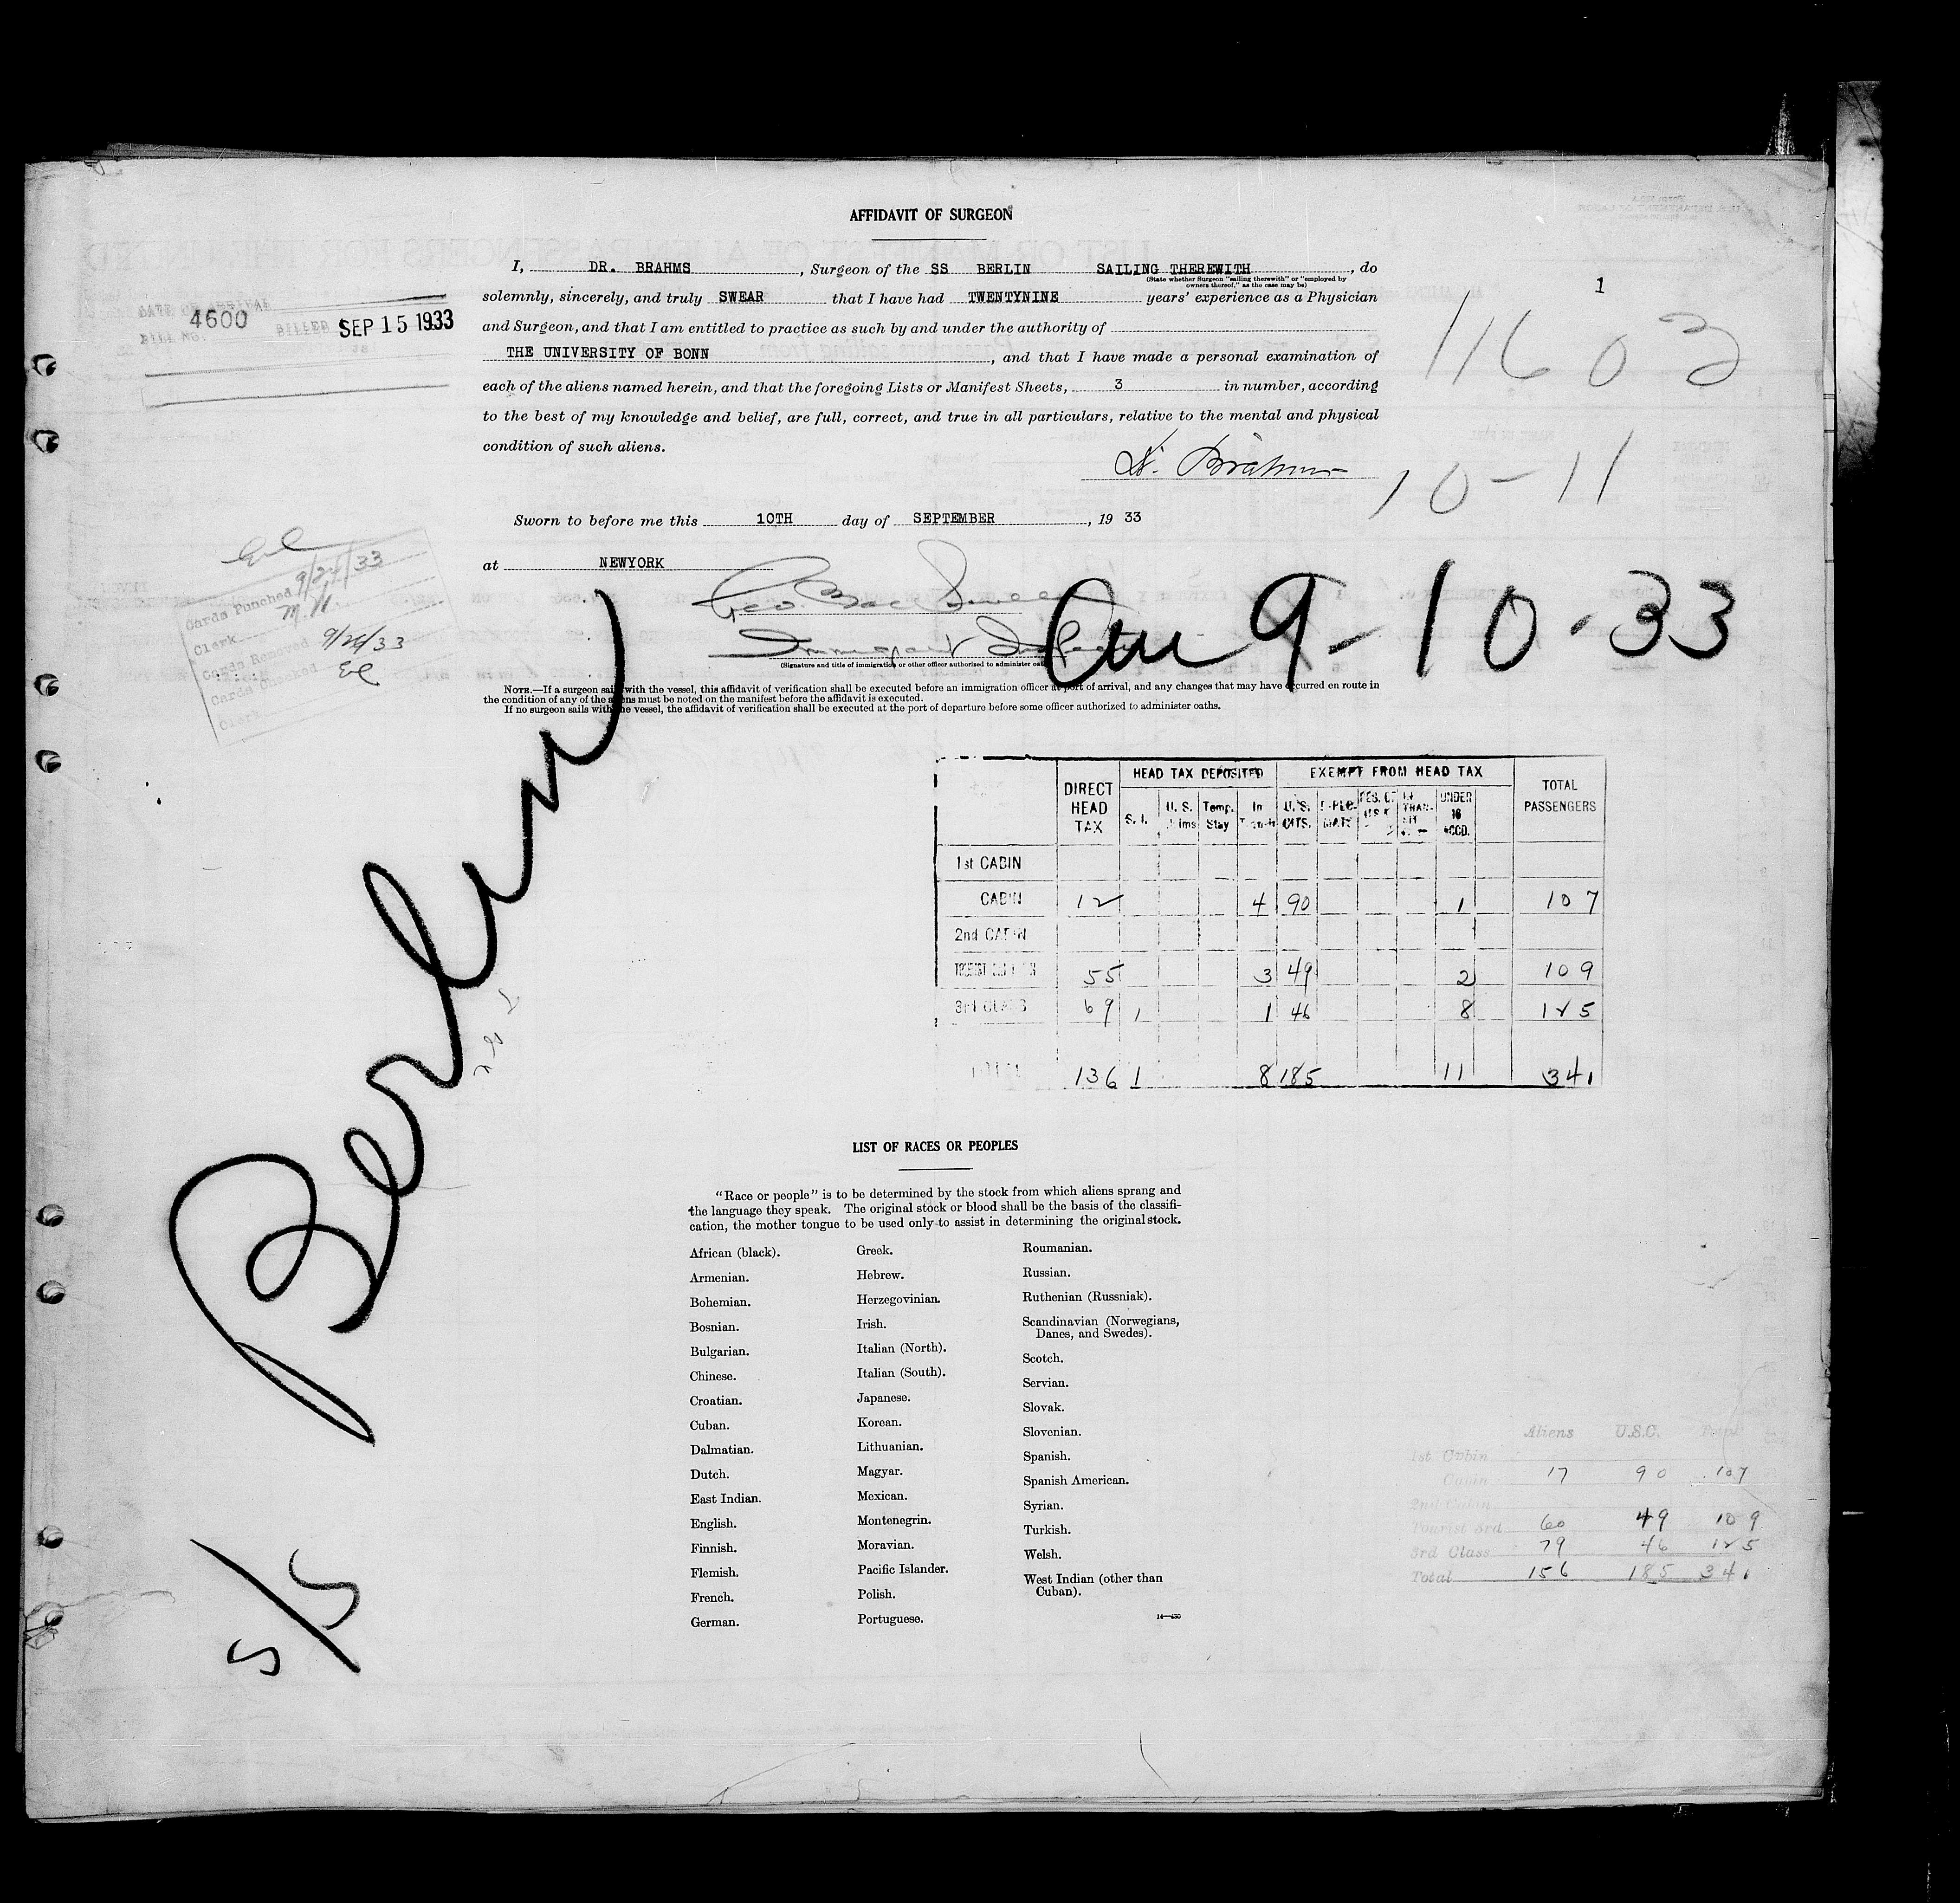 AFFIDAVIT OF SURGEON
I, DR. BRAHMS, Surgeon of the SS BERLIN SAILING THEREWITH, do
(State whether Surgeon "sailing therewith" or "employed by
owners thereof," as the case may be)
solemnly, sincerely, and truly SWEAR that I have had TWENTYNINE years' experience as a Physician
and Surgeon, and that I am entitled to practice as such by and under the authority of
THE UNIVERSITY OF BONN, and that I have made a personal examination of
each of the aliens named herein, and that the foregoing Lists or Manifest Sheets, 3 in number, according
to the best of my knowledge and belief, are full, correct, and true in all particulars, relative to the mental and physical
condition of such aliens.
Dr. Brahms
1
11603
10-11
DATE OF ARRIVAL
BILL NO. 4600 BILLED SEP 15 1933
Sworn to before me this 10TH day of SEPTEMBER, 19 33
at NEWYORK
Immigrant Inspector
(Signature and title of immigration or other officer authorized to administer oaths)
9-10-33
Cards Punched 9/24/33
Clerk M.N.
Cards Removed 9/26/33
Cards Checked
Clerk
NOTE.—If a surgeon sails with the vessel, this affidavit of verification shall be executed before an immigration officer at port of arrival, and any changes that may have occurred en route in
the condition of any of the aliens must be noted on the manifest before the affidavit is executed.
If no surgeon sails with the vessel, the affidavit of verification shall be executed at the port of departure before some officer authorized to administer oaths.
Berlin
5/5
DIRECT HEAD TAX HEAD TAX DEPOSITED EXEMPT FROM HEAD TAX TOTAL PASSENGERS
S. I. U. S. Temp. Stay In U. S. CITS. UNDER 16 ACCD.
1st CABIN
CABIN 12 4 90 1 107
2nd CABIN
TOURIST 55 3 49 2 109
3rd CLASS 69 1 1 46 8 125
TOTAL 136 1 8 185 11 341
LIST OF RACES OR PEOPLES
"Race or people" is to be determined by the stock from which aliens sprang and
the language they speak. The original stock or blood shall be the basis of the classifi-
cation, the mother tongue to be used only to assist in determining the original stock.
African (black).
Armenian.
Bohemian.
Bosnian.
Bulgarian.
Chinese.
Croatian.
Cuban.
Dalmatian.
Dutch.
East Indian.
English.
Finnish.
Flemish.
French.
German.
Greek.
Hebrew.
Herzegovinian.
Irish.
Italian (North).
Italian (South).
Japanese.
Korean.
Lithuanian.
Magyar.
Mexican.
Montenegrin.
Moravian.
Pacific Islander.
Polish.
Portuguese.
Roumanian.
Russian.
Ruthenian (Russniak).
Scandinavian (Norwegians,
Danes, and Swedes).
Scotch.
Servian.
Slovak.
Slovenian.
Spanish.
Spanish American.
Syrian.
Turkish.
Welsh.
West Indian (other than
Cuban).
14—430
Aliens U.S.C. Total
1st Cabin
Cabin 17 90 107
2nd Cabin
Tourist 3rd 60 49 109
3rd Class 79 46 125
Total 156 185 341